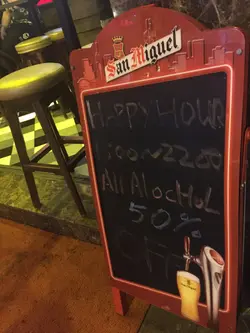 San Miguel
HAPPY HOUR
1100~2200
All AlocHoL
50%
OFF